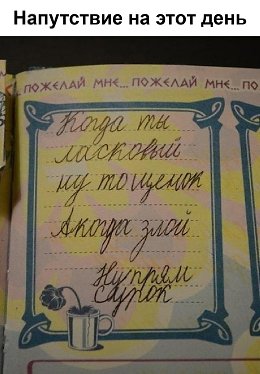 Напутствие на этот день
ПОЖЕЛАЙ МНЕ... ПОЖЕЛАЙ МНЕ... ПО
Когда ты
ласковый
ну то щенок
А когда злой
Ну прям
сурок